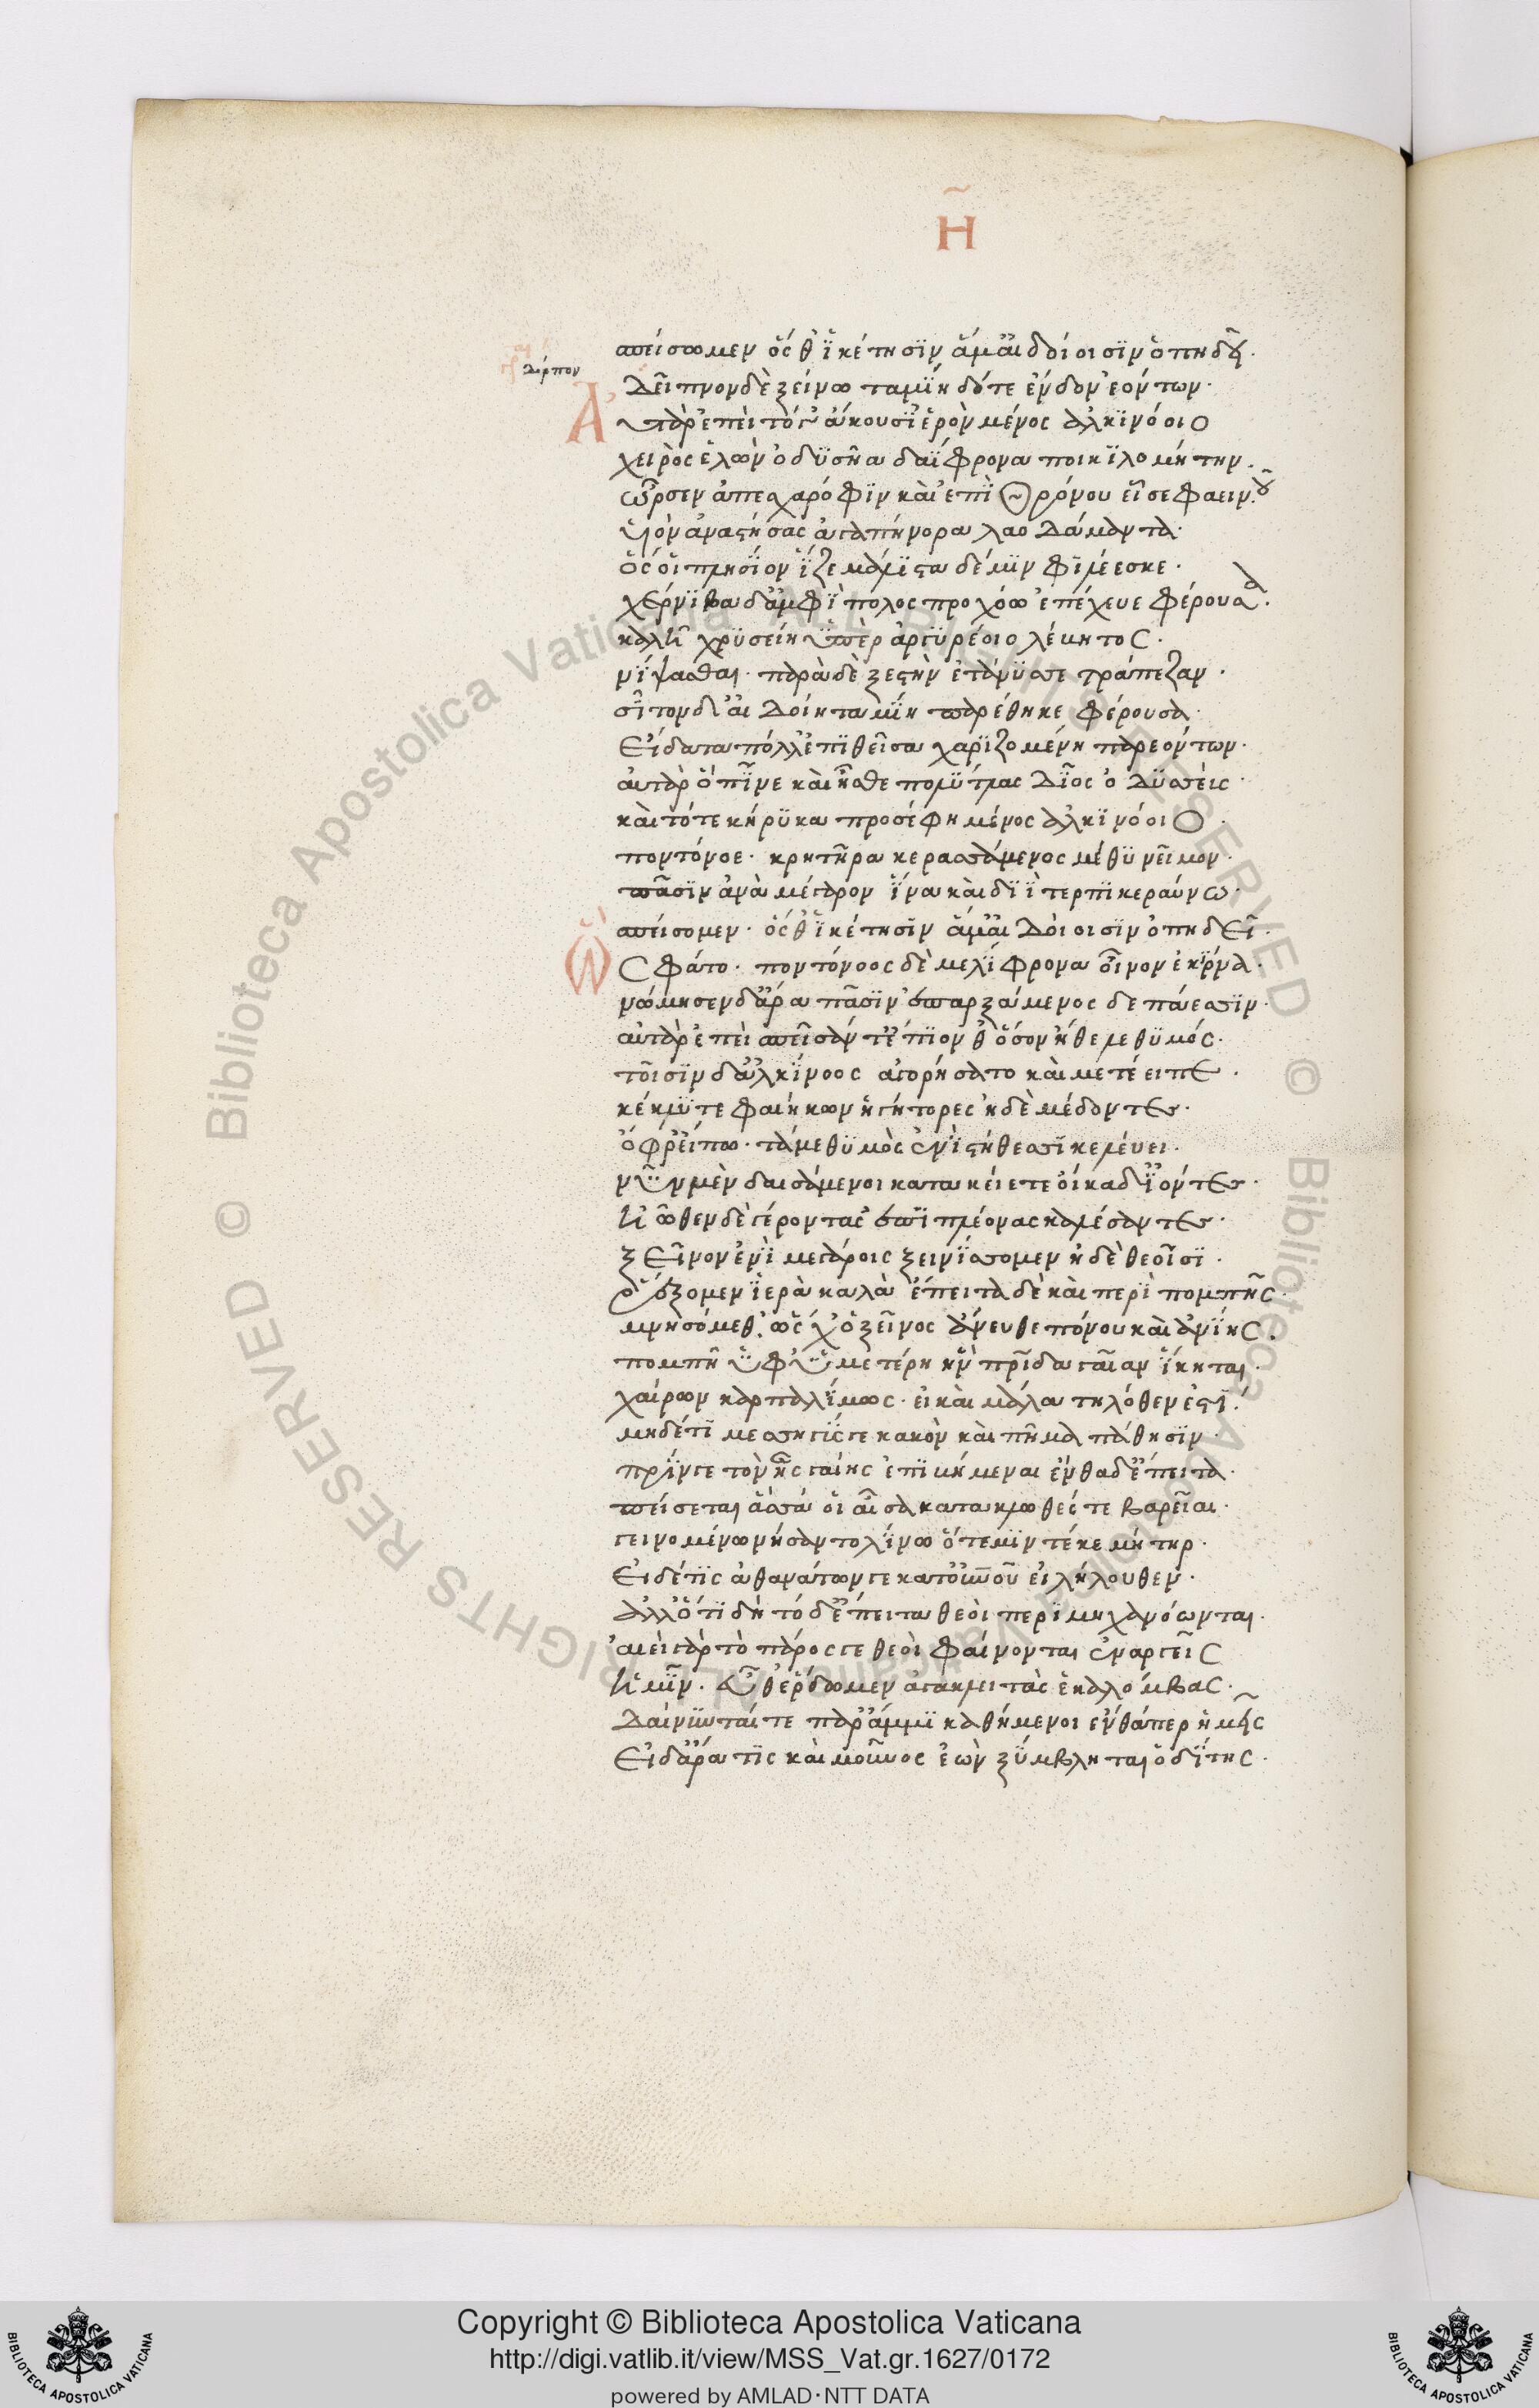 Η̃
σπείσωμεν ὅς θ' ἱκέτησϊν ἅμ' αἰδοίοισϊν ὀπηδεῖ.
δόρπον
Δεῖπνον δὲ ξείνω ταμΐη δότε ἔνδον ἐόντων.
Αὐτὰρ ἐπεὶ τό γ' ἄκουσ' ϊἑρὸν μένος ἀλκϊνόοιο
χειρὸς ἑλὼν ὀδϋσῆα δαΐφρονα ποικϊλομήτην.
ὦρσεν ἀπ' ἐσχαρόφϊν καὶ ἐπὶ θρόνου εἷσε φαεινοῦ
ϋἱὸν ἀναστήσας ἀγαπήνορα λαοδάμαντα.
ὅς οἱ πλησίον ἷζε μάλϊστα δέ μϊν φϊλέεσκε.
χέρνϊβα δ' ἀμφίπολος προχόω ἐπέχευε φέρουσα.
καλῆ χρϋσείη ὑπὲρ ἀργϋρέοιο λέβητος.
νίψασθαι. παρὰ δὲ ξεστὴν ἐτάνϋσσε τράπεζαν.
σῖτον δ' αἰδοίη ταμΐη παρέθηκε φέρουσα.
Εἴδατα πόλλ' ἐπϊθεῖσα χαρϊζομένη παρεόντων.
αὐτὰρ ὁ πῖνε καὶ ἦσθε πολύτλας δῖος ὀδϋσσεύς.
καὶ τότε κήρϋκα προσέφη μένος ἀλκϊνόοιο.
ποντόνοε. κρητῆρα κερασσάμενος μέθϋ νεῖμον.
πᾶσϊν ἀνὰ μέγαρον ἵνα καὶ δϊΐ τερπϊκεραύνω.
σπείσομεν. ὅς θ' ἱκέτησϊν ἅμ' αἰδοίοισϊν ὀπηδεῖ.
Ὣς φάτο. ποντόνοος δὲ μελίφρονα οἶνον ἐκίρνα.
νώμησεν δ' ἄρα πᾶσϊν ἐπαρξάμενος δεπάεσσϊν.
αὐτὰρ ἐπεὶ σπεῖσάν τ' ἔπϊον θ' ὅσον ἤθελε θϋμός.
τοῖσϊν δ' ἀλκΐνοος ἀγορήσατο καὶ μετέειπε.
κέκλϋτε φαιήκων ἡγήτορες ἠδὲ μέδοντες.
ὄφρ' εἴπω. τά με θϋμὸς ἐνὶ στήθεσσϊ κελεύει.
νῦν μὲν δαισάμενοι κατακείετε οἴκαδ' ϊόντες.
ἠῶθεν δὲ γέροντας ἐπὶ πλέονας καλέσαντες.
ξεῖνον ἐνὶ μεγάροις ξεινίσσομεν ἠδὲ θεοῖσϊ.
ῥέξομεν ϊἑρὰ καλὰ ἔπειτα δὲ καὶ περὶ πομπῆς
μνησόμεθ'. ὥς χ' ὁ ξεῖνος ἄνευθε πόνου καὶ ἀνΐης.
πομπῆ ὑφ' ὑμετέρη ἣν πατρίδα γαῖαν ἵκηται.
χαίρων καρπαλίμως. εἰ καὶ μάλα τηλόθεν ἐστί.
μηδέ τϊ μεσσηγύς γε κακὸν καὶ πῆμα πάθησϊν.
πρίν γε τὸν ἧς γαίης ἐπϊβήμεναι ἔνθα δ' ἔπειτα.
πείσεται ἅσσά οἱ αἶσα κατακλωθές τε βαρεῖαι.
γεινομένω νήσαντο λίνω ὅτε μϊν τέκε μήτηρ.
Εἰ δέ τϊς ἀθανάτων γε κατ' οὐρανοῦ εἰλήλουθεν.
ἄλλο τϊ δὴ τόδ' ἔπειτα θεοὶ περϊμηχανόωνται.
αἰεὶ γὰρ τὸ πάρος γε θεοὶ φαίνονται ἐναργεῖς
ἡμῖν. εὖθ' ἔρδωμεν ἀγακλειτὰς ἑκατόμβας.
Δαίνϋνταί τε παρ' ἄμμϊ καθήμενοι ἔνθά περ ἡμεῖς
Εἰ δ' ἄρα τϊς καὶ μοῦνος ἐὼν ξύμβληται ὁδίτης.
Copyright © Biblioteca Apostolica Vaticana
http://digi.vatlib.it/view/MSS_Vat.gr.1627/0172
powered by AMLAD·NTT DATA